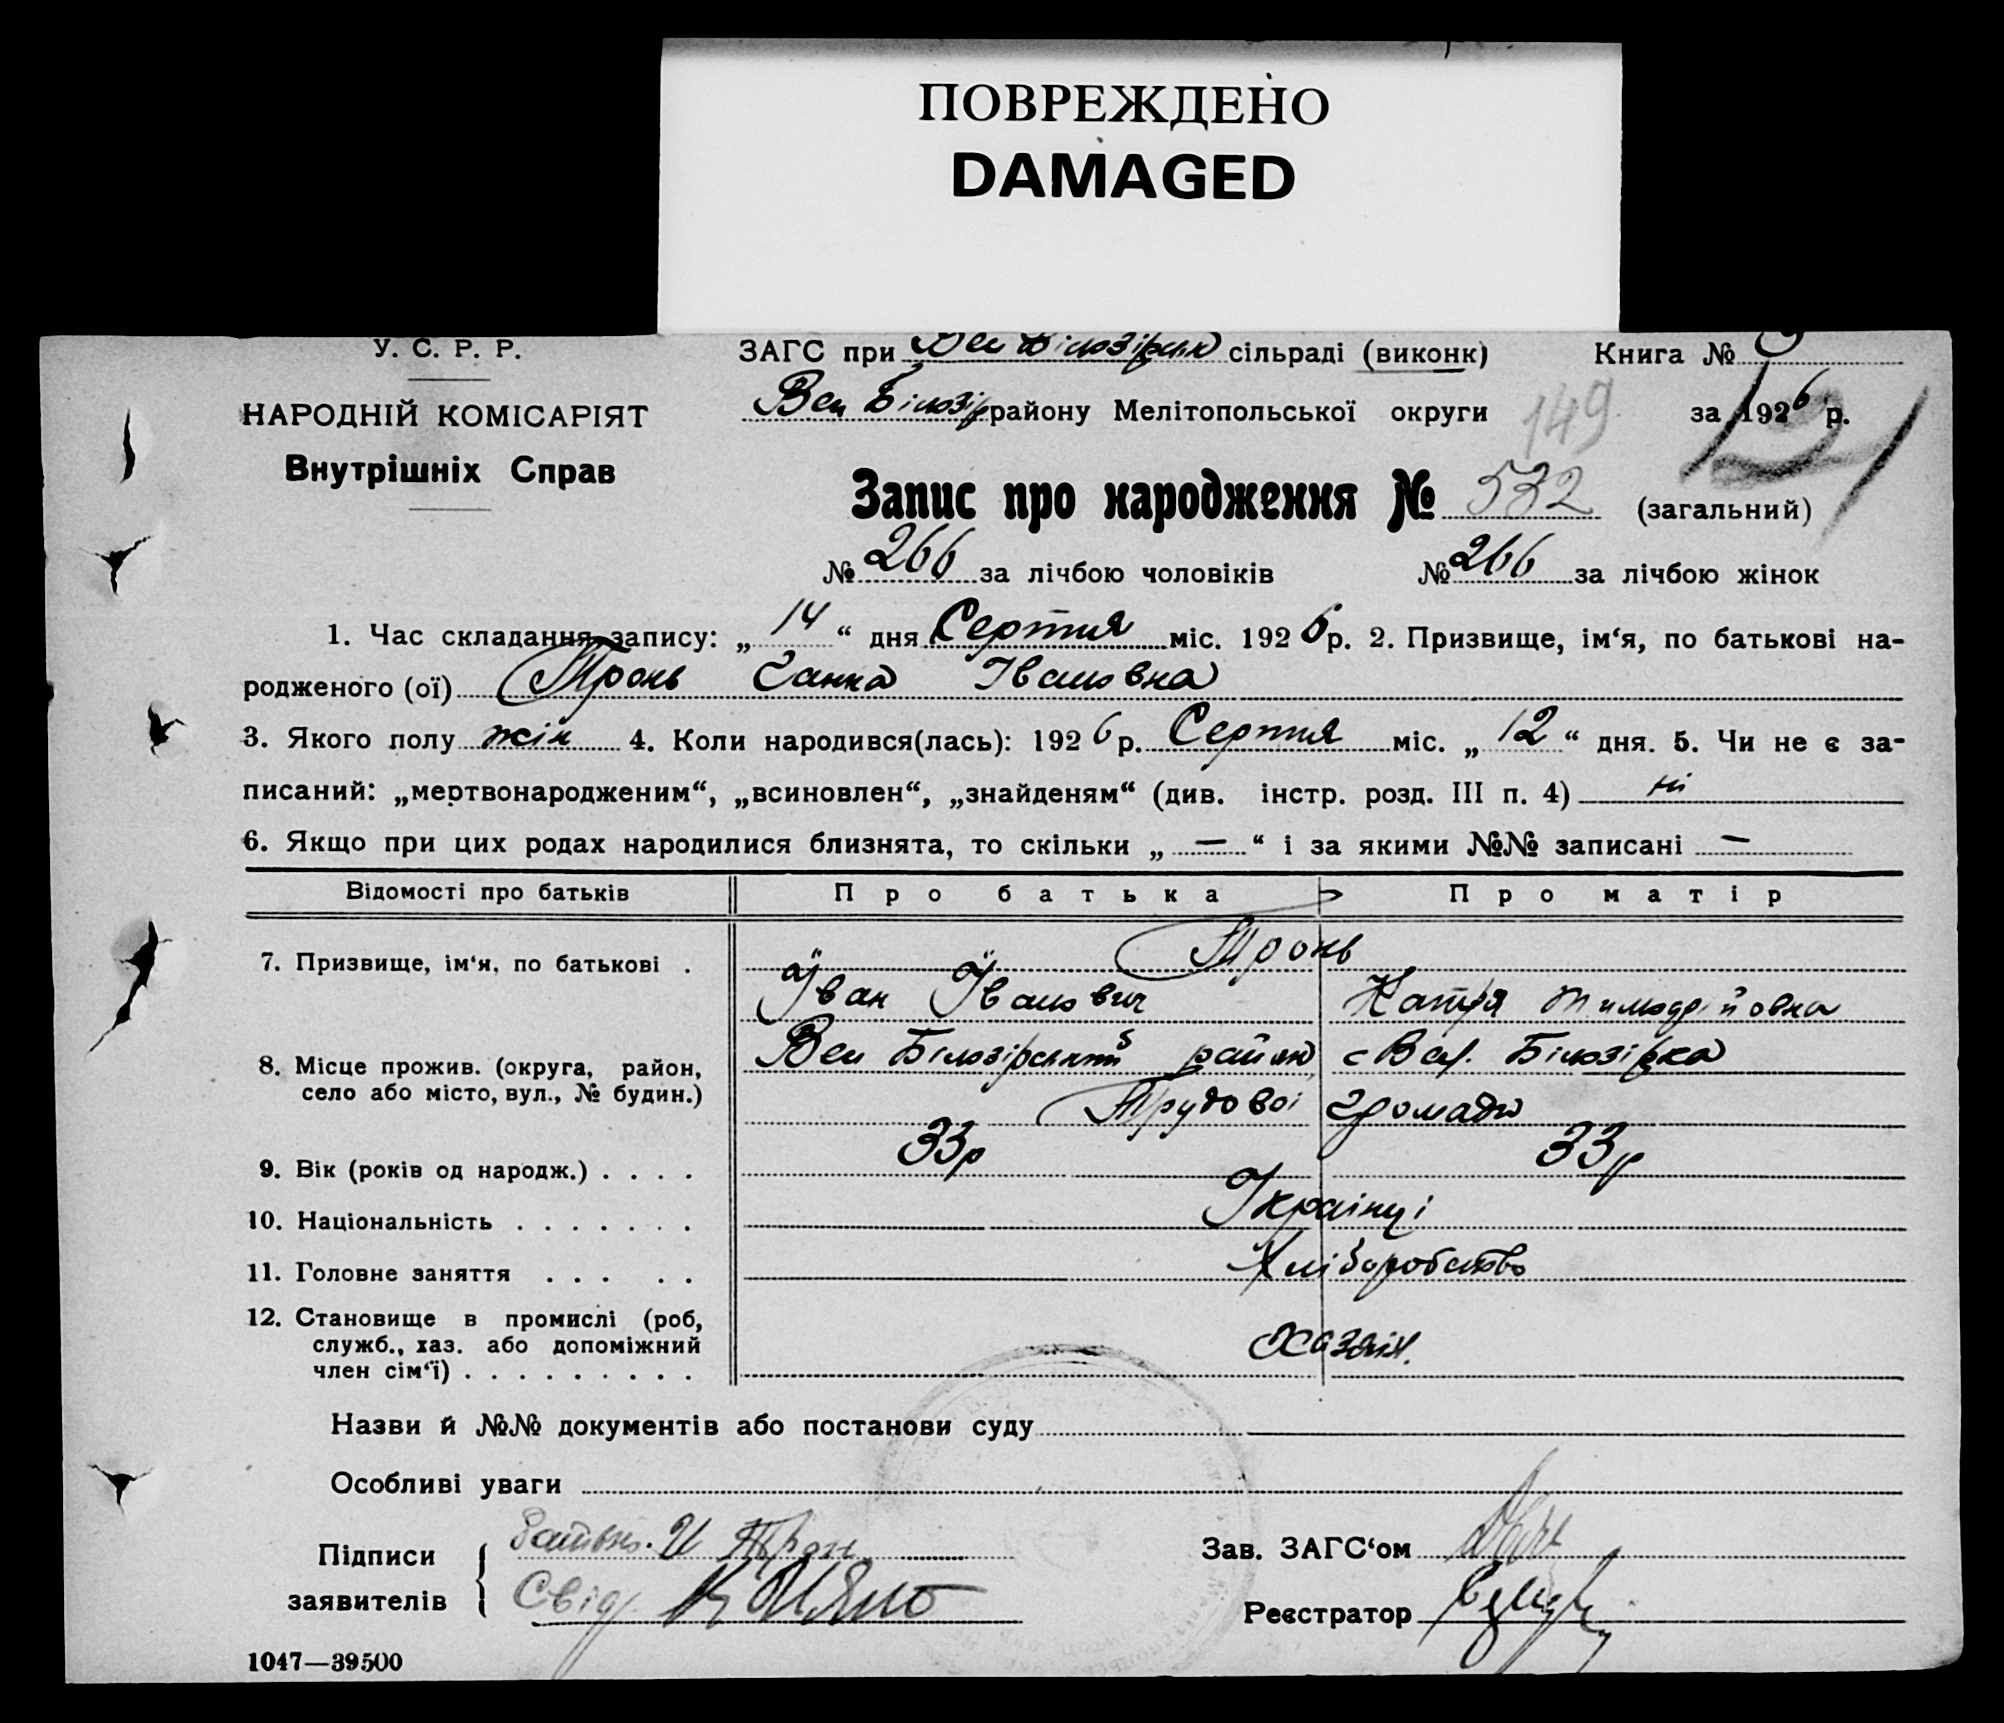 ПОВРЕЖДЕНО
DAMAGED
У. С. Р. Р.
ЗАГС при Вел Білозірськ сільраді (виконк) Книга №
НАРОДНІЙ КОМІСАРІЯТ
Вел Білозір району Мелітопольської округи 149 за 1926 р.
Внутрішніх Справ
Запис про народження № 532 (загальний)
№ 266 за лічбою чоловіків № 266 за лічбою жінок
1. Час складання запису: „ 14 “ дня Серпня міс. 1926 р. 2. Призвище, ім‘я, по батькові на-
родженого (ої) Тронь Ганна Івановна
3. Якого полу жін 4. Коли народився(лась): 1926 р. Серпня міс. „ 12 “ дня. 5. Чи не є за-
писаний: „мертвонародженим“, „всиновлен“, „знайденям“ (див. інстр. розд. III п. 4) ні
6. Якщо при цих родах народилися близнята, то скільки „ — “ і за якими №№ записані —
Відомості про батьків Про батька Про матір
7. Призвище, ім‘я, по батькові . Тронь
Іван Іванович Катря
8. Місце прожив. (округа, район, Вел Білозірський район с Вел. Білозірка
село або місто, вул., № будин.) Трудової громади
9. Вік (років од народж.) . . . . 33р 33р
10. Національність . . . . . . . Українці
11. Головне заняття . . . . . Хліборобство
12. Становище в промислі (роб,
служб., хаз. або допоміжний Хазяїн.
член сім‘ї) . . . . . . . . .
Назви й №№ документів або постанови суду
Особливі уваги
Підписи И Тронь Зав. ЗАГС‘ом
заявителів Свід. Реєстратор
1047—39500